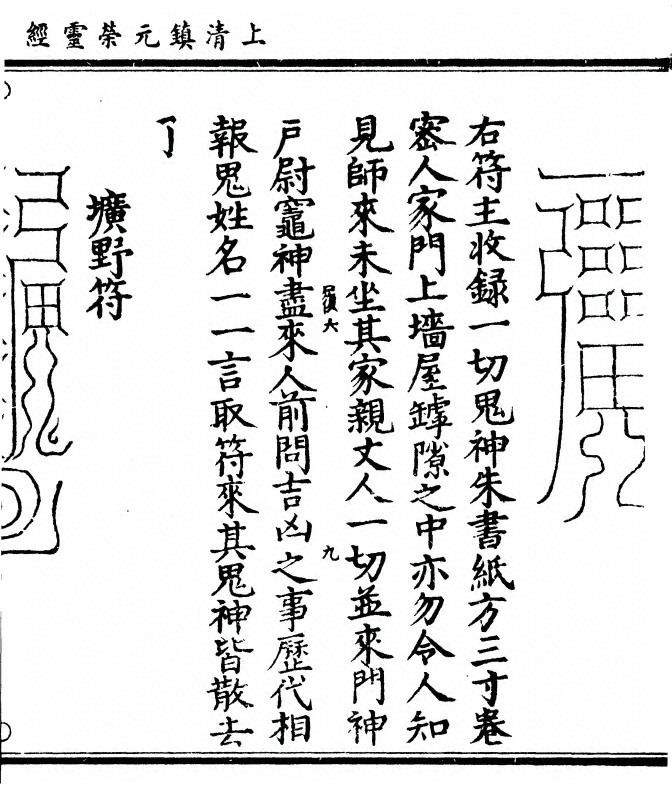 上清鎮元榮靈經
右符主收録一切鬼神朱書紙方三寸卷
密人家門上墻屋罅隙之中亦勿令人知
見師來未坐其家親丈人一切並來門神
尾張六 九
戶尉竈神盡來人前問吉凶之事歷代相
報鬼姓名一一言取符來其鬼神皆散去
了
壙野符